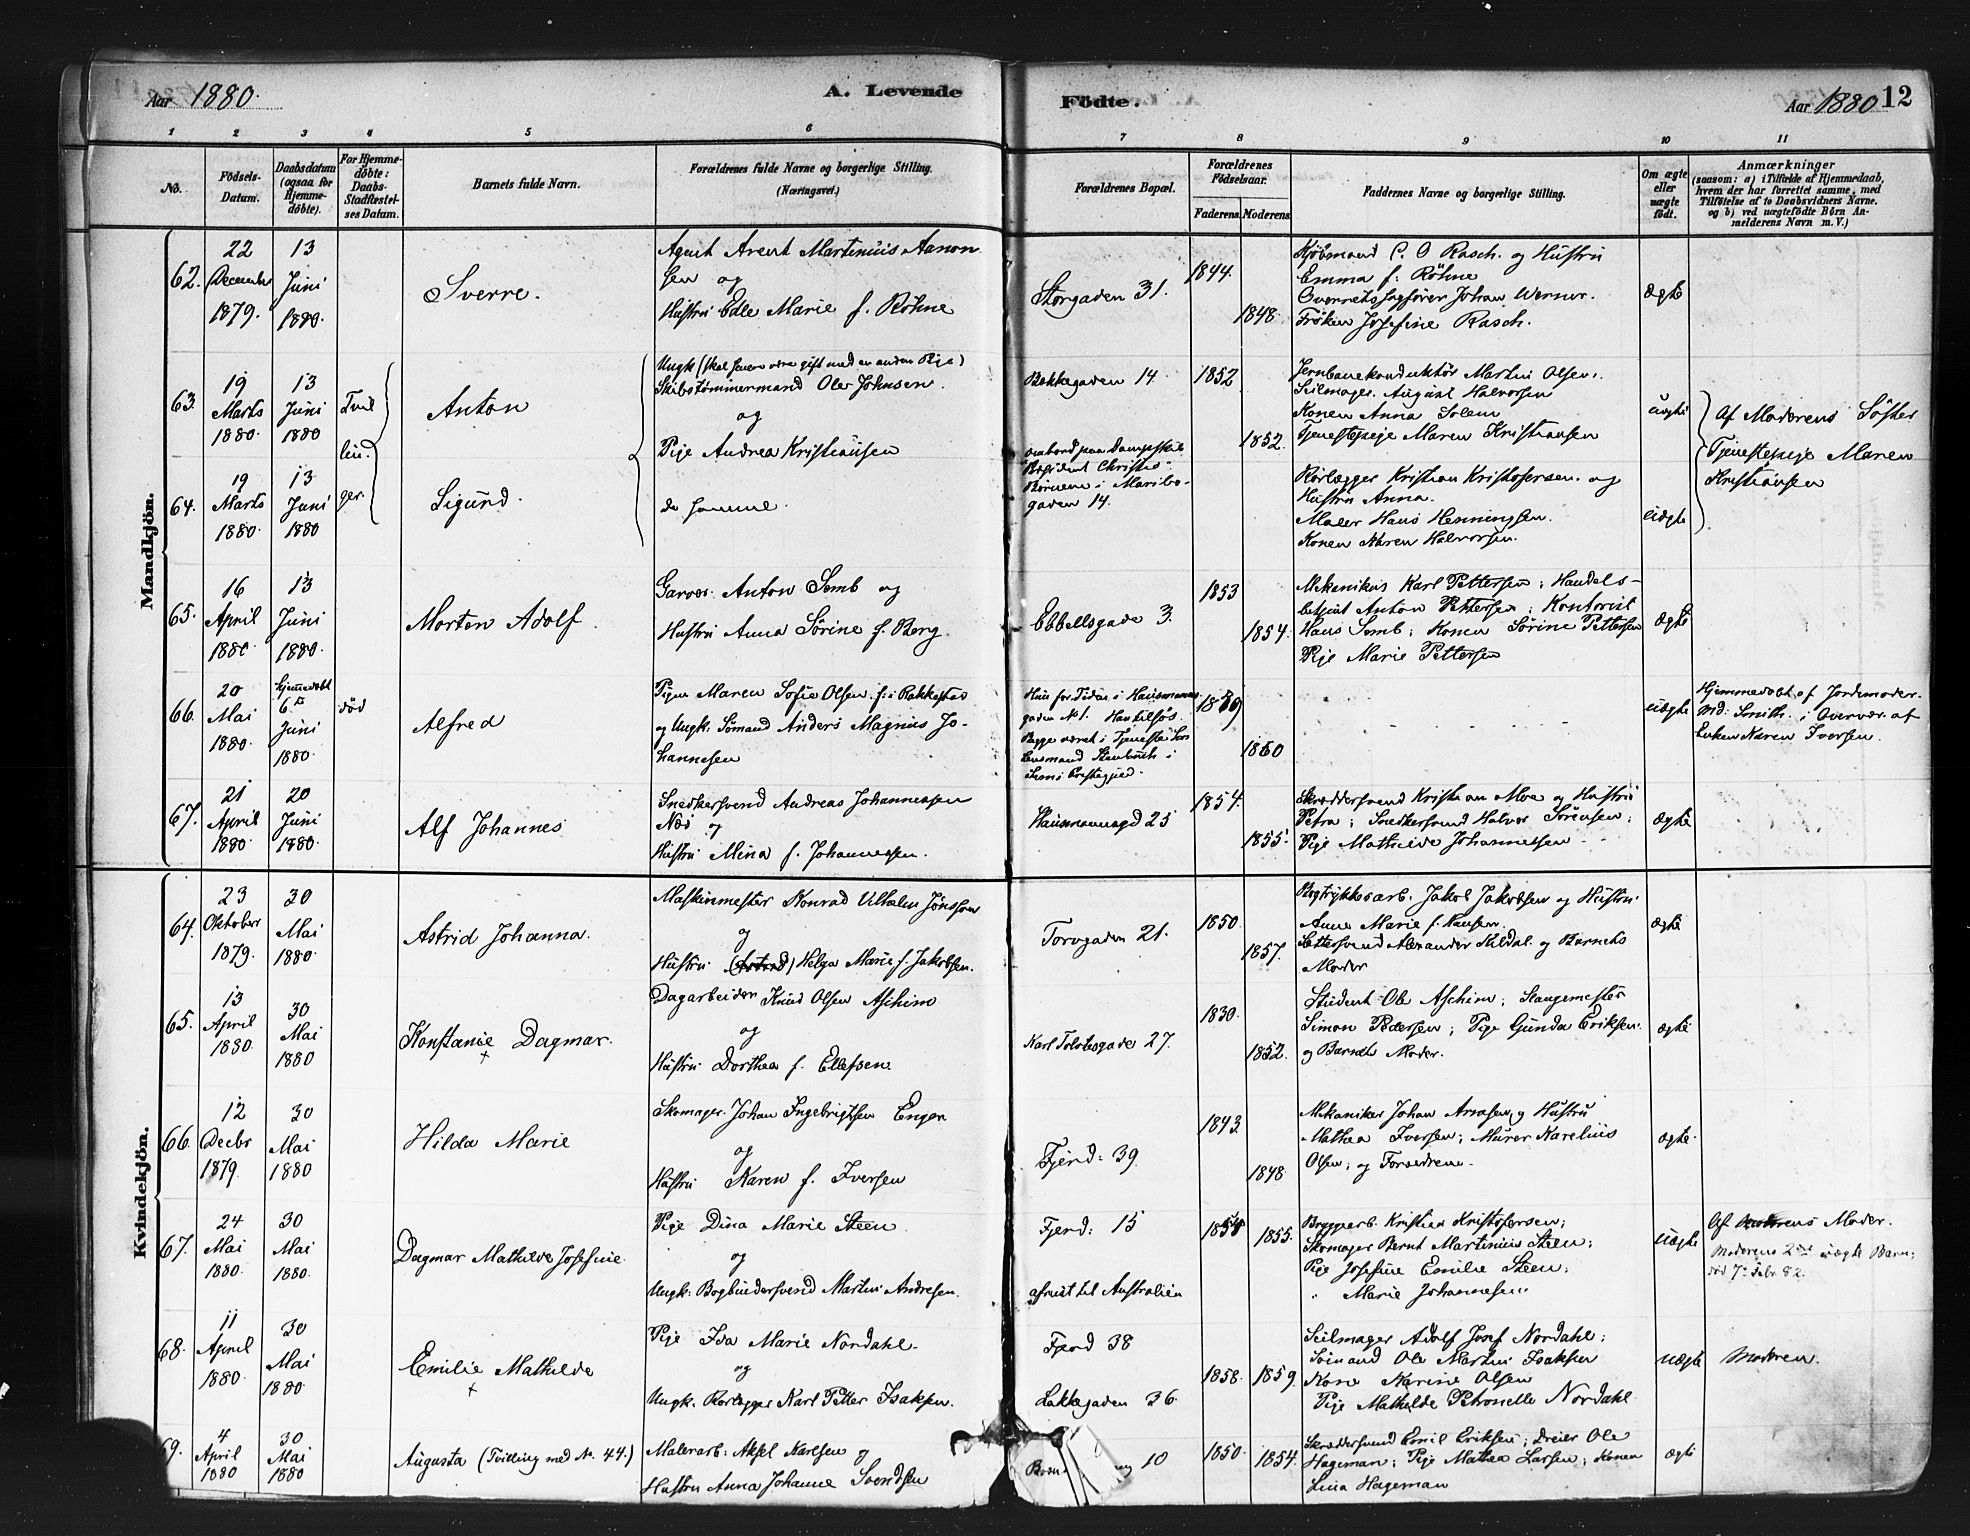 Aar 1880.
A. Levende
Födte.
Aar 1880
12
1 2 3 4 5 6 7 8 9 10 11
No.
Födsels-
Datum.
Daabsdatum
(ogsaa for
Hjemme-
døbte).
For Hjemme-
døbte:
Daabs-
Stadfæstel-
ses Datum.
Barnets fulde Navn.
Forældrenes fulde Navne og borgerlige Stilling.
(Næringsvei.)
Forældrenes Bopæl.
Forældrenes
Födselsaar.
Faderens.
Moderens.
Faddernes Navne og borgerlige Stilling.
Om ægte
eller
uægte
født.
Anmærkninger
(saasom: a) i Tilfælde af Hjemmedaab,
hvem der har forrettet samme, med
Tilföielse af to Daabsvidners Navne.
og b) ved uægtefödte Börn An-
melderens Navn m. V.)
Mandkjön.
62.
22
December
1879.
13
Juni
1880.
Sverre.
Agent Arent Martinius Aanon
sen og
Hustru Edle Marie f. Röhne
Storgaden 31.
1844.
1848
Kjöbmand C. O Rasch. og Hustru
Emma f. Röhne
Overretssagförer Johan Werner.
Fröken Josefine Rasch.
Ægte
63.
19
Marts
1880.
13
Juni
1880
Tvil
Anton
Ungk (skal senere være gift med en anden Pige)
Skibstømmermand Ole Johnsen.
og
Pige Andrea Kristiansen
Bakkegaden 14.
ombord paa Dampskib
1852
1852.
Jernbanekonduktör Martin Olsen.
Seilmager August Halvorsen
Konen Anna Solem
Tjenestepige Maren Kristiansen
uægte
Af Moderens Söster
Tjenestepige Maren
Kristiansen
64.
19
Marts
1880.
13
Juni
1880
lin.
ger.
Sigurd.
de samme.
"Præsident Christie"
Börnene i Maribo-
gaden 14.
Rörlægger Kristian Kristofersen. og
Hustru Anna.
Maler Hans Henningsen.
Konen Karen Halvorsen.
uægte
65.
16
April
1880
13
Juni
1880.
Morten Adolf.
Garver Anton Semb og
Hustru Anna Sörine f. Berg.
Ebbellsgade 3.
1853
1854.
Mekanikus Karl Pettersen; Handels-
betjent Anton Pettersen; Kontorist
Hans Semb; Konen Sörine Pettersen
Pige Marie Pettersen
Ægte
66.
20
Mai
1880.
Hjemmedøbt
6te
Juni
1880.
död
Alfred
Pigen Maren Sofie Olsen f. i Rakkestad
og Ungk. Sömand Anders Magnus Jo-
hannesen
Hun for Tiden i Hausmanns
gaden No 1. Han tilsös.
Begge været i Tjeneste
1860
uægte
Hjemmedøbt af Jordemoder
Md: Smith. i Overvær af
Enken Karen Iversen.
67.
21
April
1880.
20
Juni
1880.
Alf Johannes
Snedkersvend Andreas Johannessen
Næs og
Hustru Mina f. Johannessen.
Hausmannsgd 25
1854.
1855.
Skræddersvend Kristian Moe og Hustru
Petra; Snedkersvend Halvor Sörensen;
Pige Mathilde Johannessen
ægte
Kvindekjön.
64.
23
Oktober
1879.
30
Mai
1880.
Astrid Johanna.
Maskinmester Konrad Vilhelm Jönsson
og
Hustru (Astrid) Helga Marie f. Jakobsen.
Torvgaden 21.
1850.
1857.
Bogtrykkerarb. Jakob Jakobsen og Hustru
Anne Marie f. Hansen.
Sættersvend Alexander Kildal. og Barnets
Moder
ægte
65.
13
April
1880.
30
Mai
1880
Konstanse Dagmar.
+
Dagarbeider Knud Olsen Aschim
og
Hustru Dorthea f. Ellefsen.
Karl 27.
1830.
1852.
Student Ole Aschim; Slangemester
Simon Pedersen; Pige Gunda Eriksen.
og Barnets Moder.
ægte
66.
12
Decbr
1879.
30
Mai
1880
Hilda Marie
Skomager. Johan Ingebrigtsen Enger
og
Hustru Karen f. Iversen
Fjerd: 39.
1843.
1848.
Mekaniker Johan Arnesen, og Hustru
Mathea Iversen; Murer Karelius
Olsen; og Forældrene.
ægte.
67.
24
Mai
1880.
30
Mai
1880.
Dagmar Mathilde Josefine.
Pige Dina Marie Steen.
og
Ungk: Bogbindersvend Martin Andresen.
Fjerd: 15
afreist til Australien
1855.
Bryggerarb. Kristian Kristofersen;
Skomager Bernt Martinius Steen;
Pige Josefine Emilie Steen;
" Marie Johannesen.
uægte
Af Moderens Moder.
Moderens 2det uægte Barn;
död 7. Febr 82.
68.
11
April
1880.
30
Mai
1880.
Emilie Mathilde
+
Pige Ida Marie Nordahl.
og
Ungk. Rörlægger Karl Petter Isaksen.
Fjerd 38
Lakkegaden 36.
1858.
1859.
Seilmager Adolf Josef Nordahl;
Sömand Ole Martin Isaksen
Kone Karine Olsen
Pige Mathilde Petronelle Nordahl.
uægte
Moderen.
69.
4
April
1880
30
Mai
1880
Augusta (Tvilling med No. 44.)
Malerarb: Aksel Karlsen og
Hustru Anna Johanne Svendsen
10
1850.
1854.
Skræddersvend Emil Eriksen; Dreier Ole
Hageman; Pige Mathea Larsen; Konen
Lina Hageman
ægte